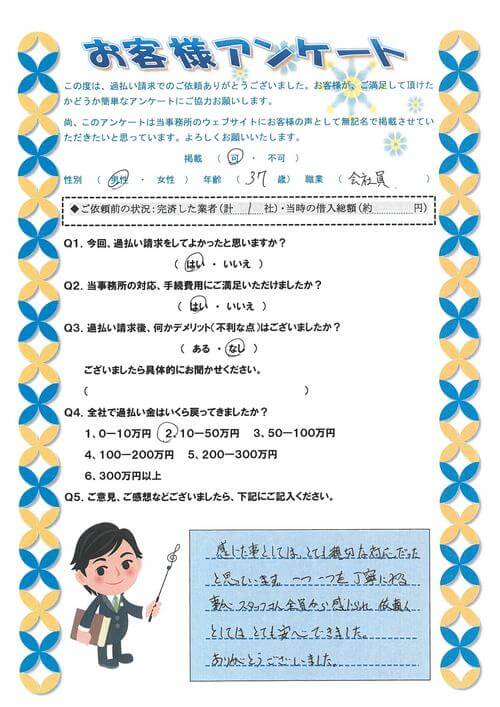 お客様アンケート
この度は、過払い請求でのご依頼ありがとうございました。お客様が、ご満足して頂けた
かどうか簡単なアンケートにご協力お願いします。
尚、このアンケートは当事務所のウェブサイトにお客様の声として無記名で掲載させてい
ただきたいと思っています。よろしくお願いいたします。
掲載 ( 可 ・ 不可 )
性別 ( 男性 ・ 女性 ) 年齢 ( 37 歳) 職業 ( 会社員 )
◆ご依頼前の状況:完済した業者(計 1 社)・当時の借入総額(約 円)
Q1. 今回、過払い請求をしてよかったと思いますか?
( はい ・ いいえ )
Q2. 当事務所の対応、手続費用にご満足いただけましたか?
( はい ・ いいえ )
Q3. 過払い請求後、何かデメリット(不利な点)はございましたか?
( ある ・ なし )
ございましたら具体的にお聞かせください。
( )
Q4. 全社で過払い金はいくら戻ってきましたか?
1、0−10万円 2、10−50万円 3、50−100万円
4、100−200万円 5、200−300万円
6、300万円以上
Q5. ご意見、ご感想などございましたら、下記にご記入ください。
感じた事としては、とても親切な対応だった
と思っています。一つ一つを丁寧にやる
事がスタッフさん全員から感じられ 依頼人
としてはとても安心できました。
ありがとうございました。